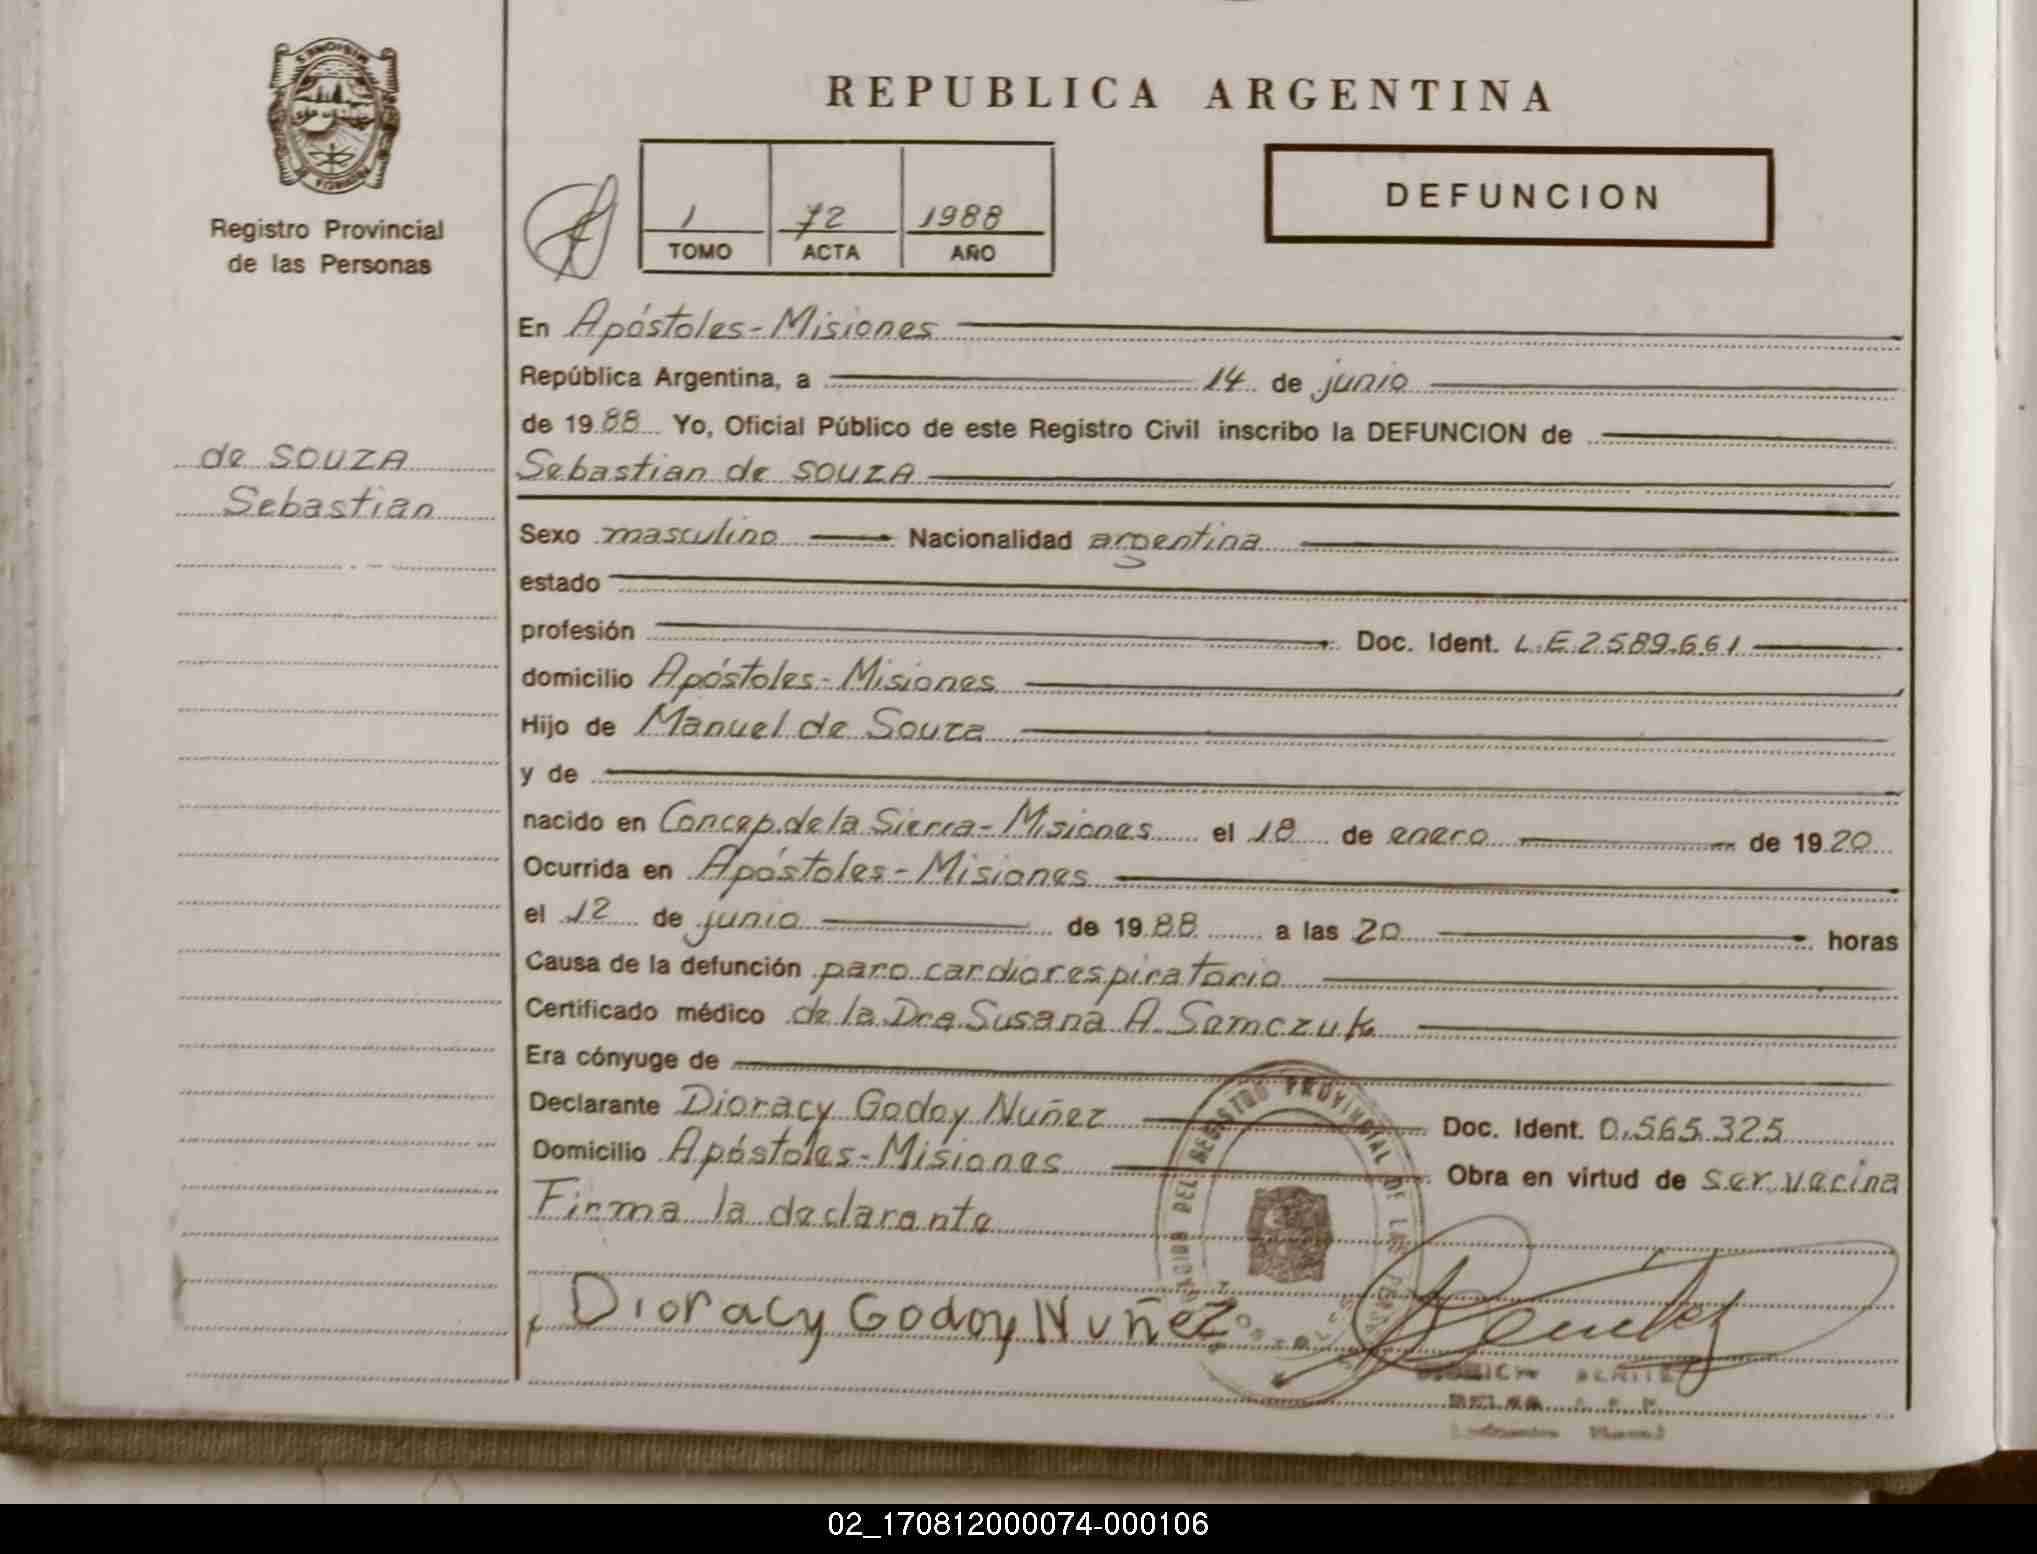 MISIONES
PROVINCIA DE
Registro Provincial
de las Personas
REPUBLICA ARGENTINA
1 72 1988
TOMO ACTA AÑO
DEFUNCION
de SOUZA
Sebastian
En Apóstoles-Misiones
República Argentina, a 14 de junio
de 1988 Yo, Oficial Público de este Registro Civil inscribo la DEFUNCION de
Sebastian de SOUZA
Sexo masculino Nacionalidad argentina
estado
profesión Doc. Ident. L.E.2.589.661
domicilio Apóstoles-Misiones
Hijo de Manuel de Souza
y de
nacido en Concep.de la Sierra-Misiones el 18 de enero de 1920
Ocurrida en Apóstoles-Misiones
el 12 de junio de 1988 a las 20 horas
Causa de la defunción paro cardiorespiratorio
Certificado médico de la Dra Susana A. Samczuk
Era cónyuge de
Declarante Dioracy Godoy Nuñez Doc. Ident. 0.565.325
Domicilio Apóstoles-Misiones Obra en virtud de ser vecina
Firma la declarante
Dioracy Godoy Nuñez
DEL REGISTRO PROVINCIAL DE LAS
02_170812000074-000106